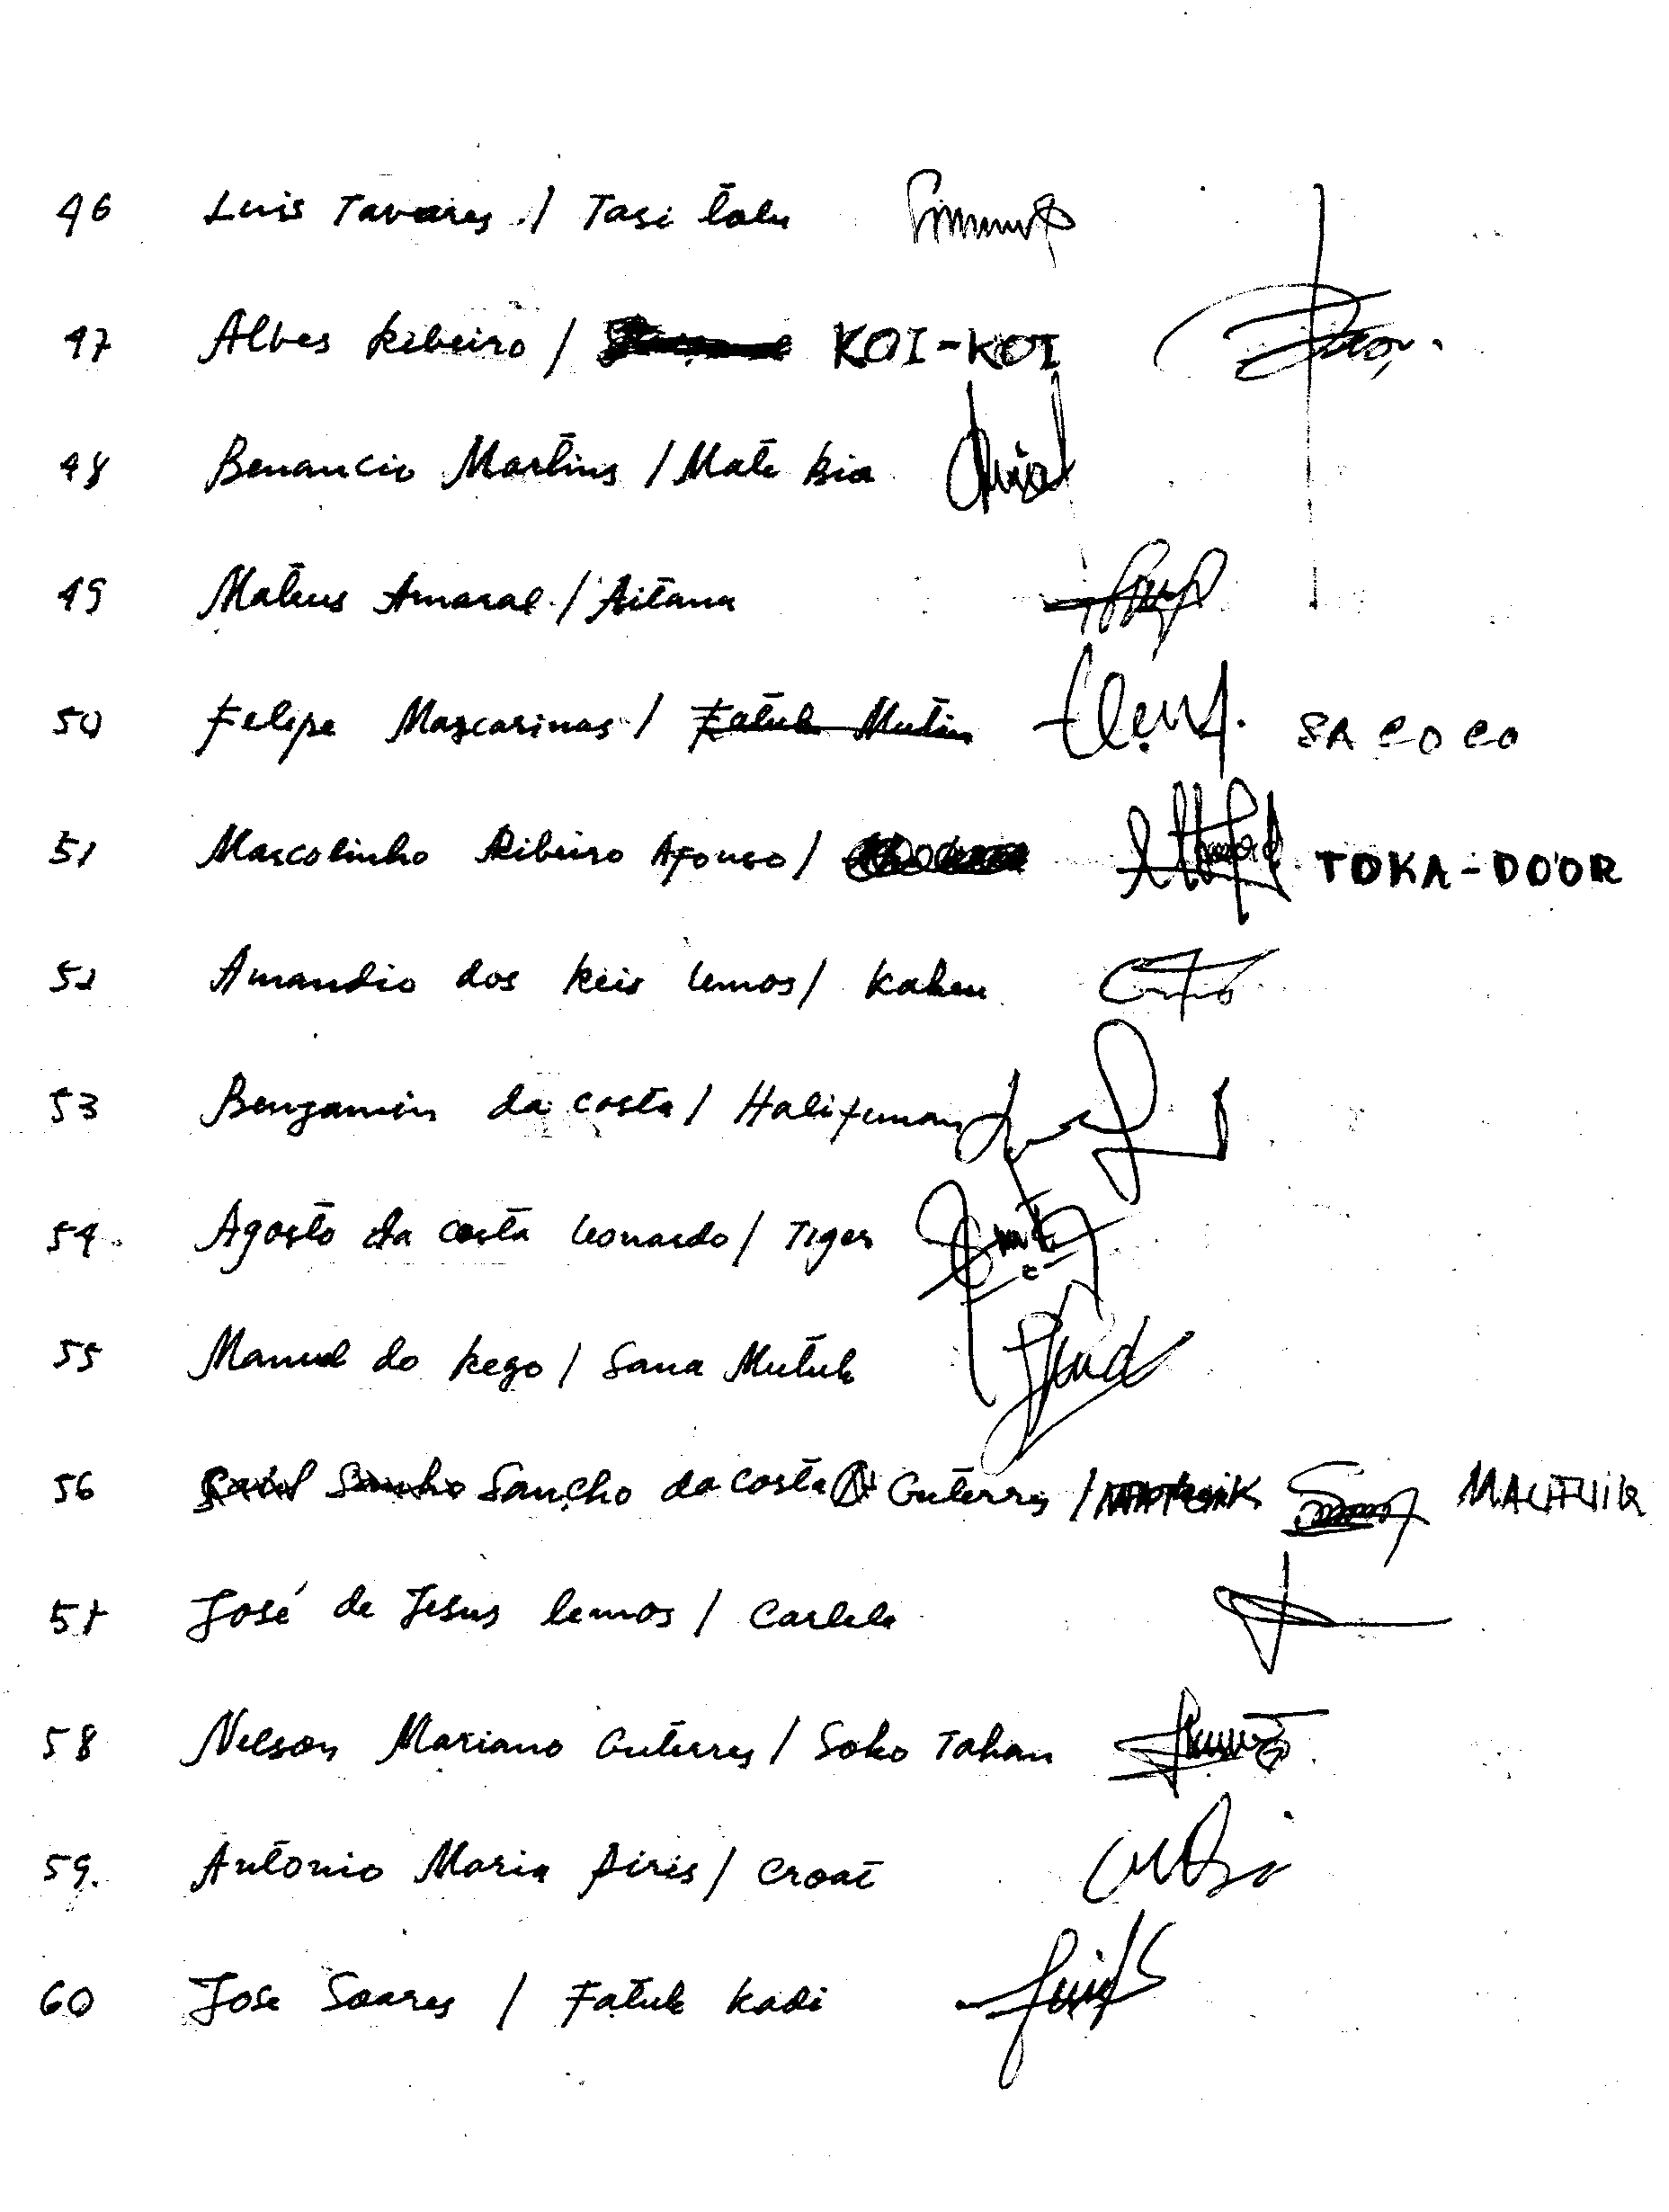 46 Luis Tavares / Tasi tolu
47 Albes Ribeiro / KOI-KOI
48 Benancio Martins / Mate Bia
49 Mateus Amaral / Aitana
50 Felipe Mascarinas / Fatuk Mutin SACOCO
51 Marcolinho Ribeiro Afonso / TOKA-DOOR
52 Amandio dos Reis Lemos / Kaheu
53 Bengamin da Costa / Halifuman
54. Agosto da Costa Leonardo / Tiger
55 Manuel do Rego / Sana Mutuk
56 Sancho da Costa Guterres / MAUFUIK
57 José de Jesus Lemos / Carlele
58 Nelson Mariano Guterres / Soko Tahan
59. Antonio Maria Aires / Croat
60 Jose Soares / Fatuk Kadi